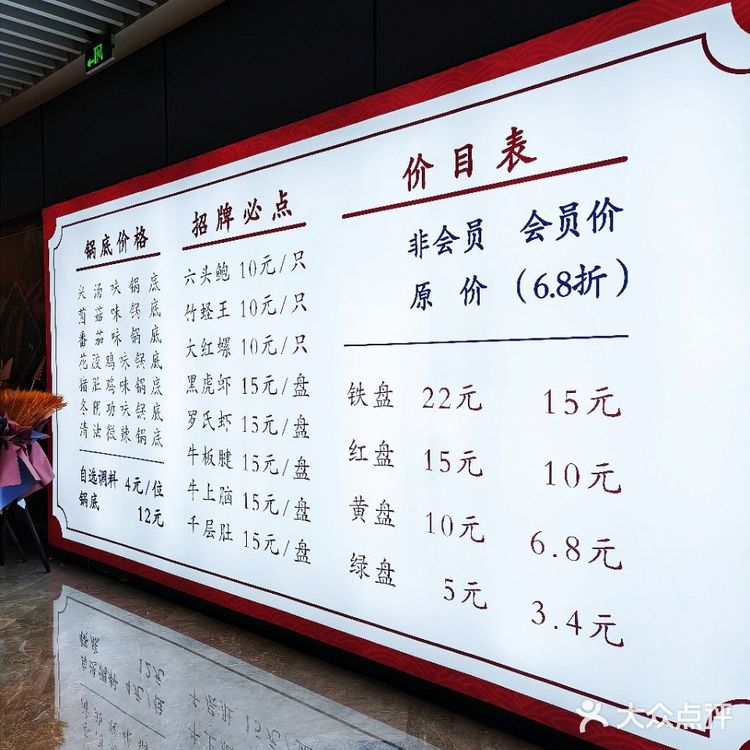 锅底价格
头汤味锅底
菌菇味锅底
番茄味锅底
花胶鸡味锅底
猪肚鸡味锅底
冬阴功味锅底
清油微辣锅底
自选调料 4元/位
锅底 12元
招牌必点
六头鲍 10元/只
竹蛏王 10元/只
大红螺 10元/只
黑虎虾 15元/盘
罗氏虾 15元/盘
牛板腱 15元/盘
牛上脑 15元/盘
千层肚 15元/盘
价目表
非会员 会员价
原价 (6.8折)
铁盘 22元 15元
红盘 15元 10元
黄盘 10元 6.8元
绿盘 5元 3.4元
大众点评